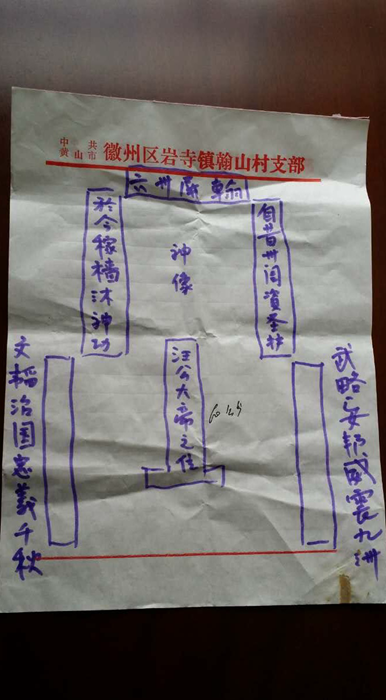 中共
黄山市
徽州区岩寺镇翰山村支部
六州
自昔州闾資圣护
於今稼穑沐神功
神像
汪公大帝之位
武略安邦威震九洲
文韬治国忠義千秋